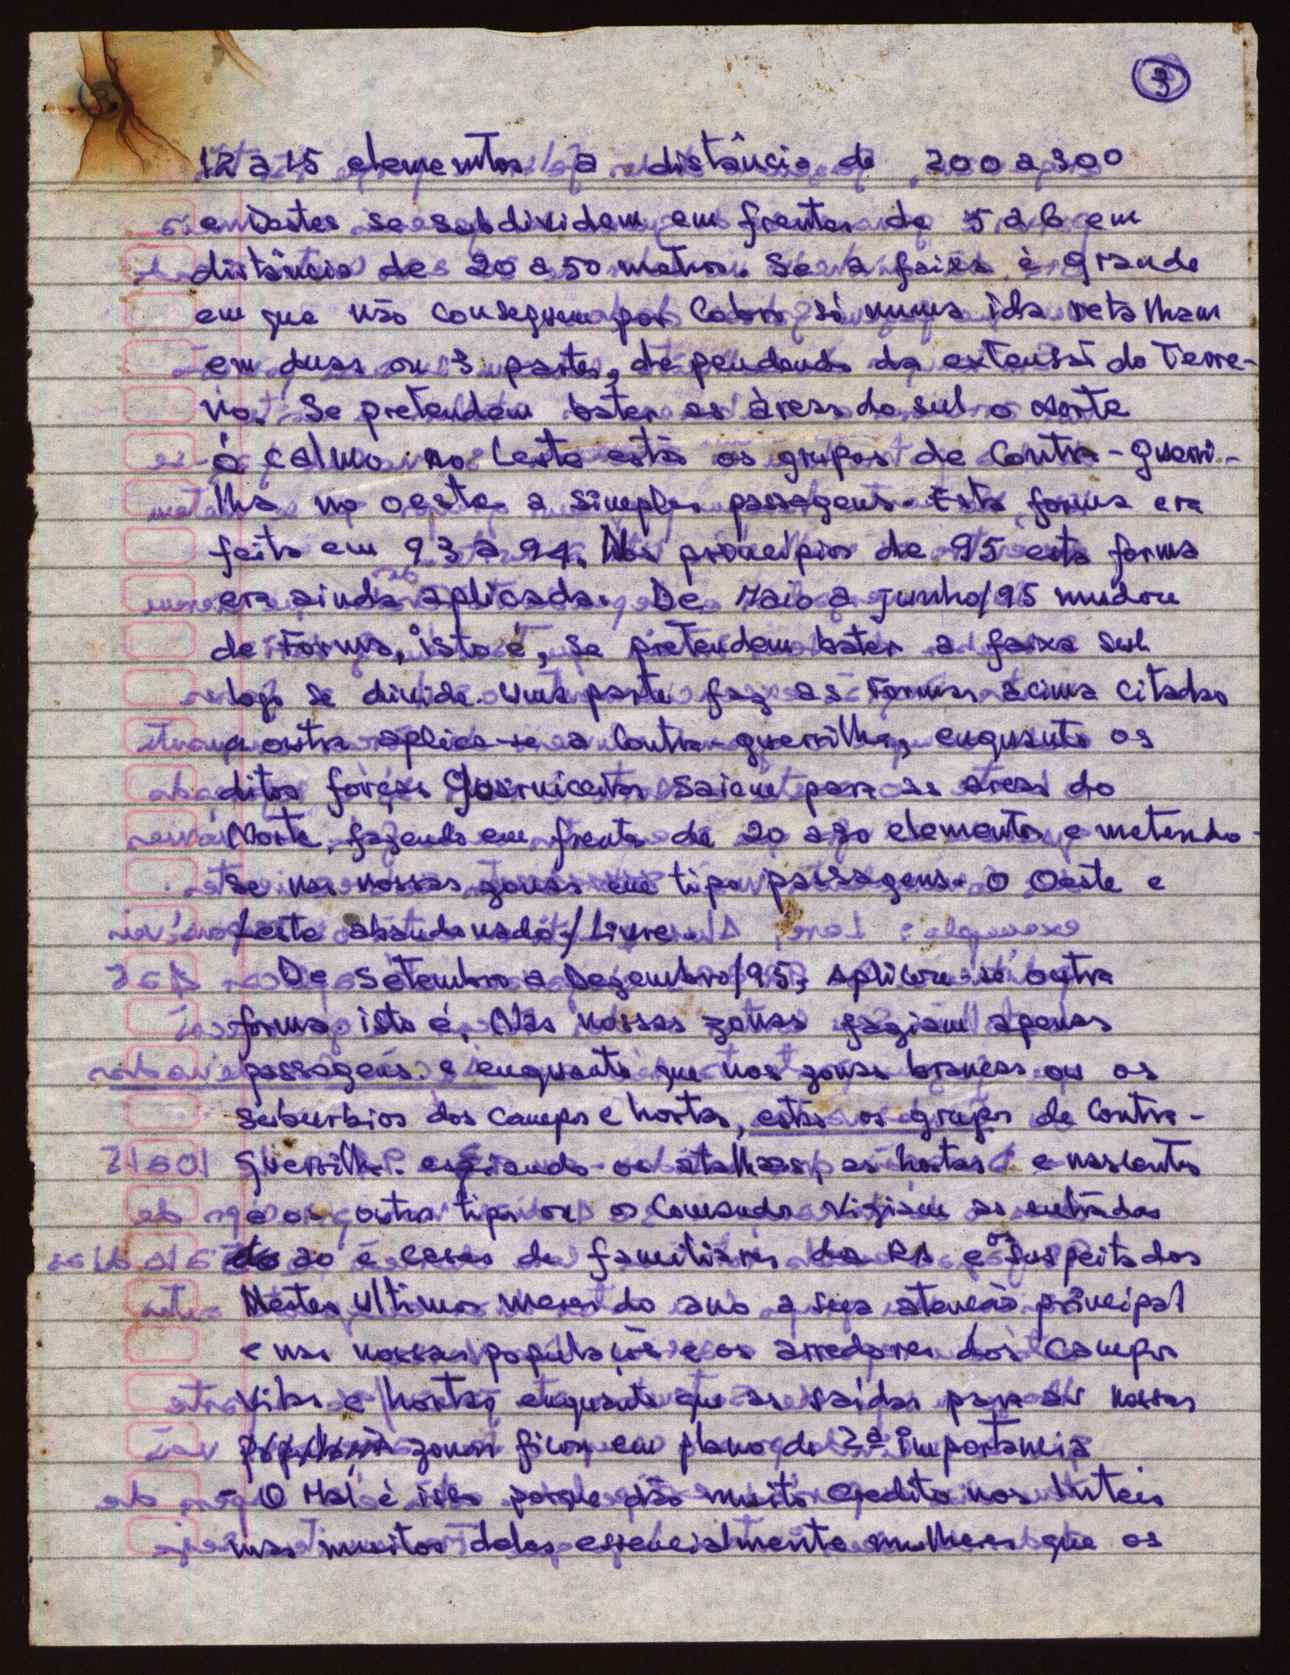 3
12 a 15 elementos a distância de 200 a 300
e Destes se subdividem em frentes de 5 a 6 em
distância de 20 a 50 metros. Se a faixa é grande
em que não conseguem por Cobrir só numa ida retalham
em duas ou 3 partes, dependendo da extensão do Terre-
no. Se pretendem bater as àreas do sul o norte
é calmo no Leste está os grupos de Contra-Guerri-
lha no oeste a simples passagens. Esta forma era
feita em 93 à 94. Nos princípios de 95 esta forma
era ainda aplicada. De Maio a Junho/95 mudou
de Forma, isto é, Se pretendem bater a faixa sul
logo se divide uma parte faz as Formas acima citadas
a outra aplica-se a Contra-guerrilha, enquanto os
ditos forças Guarnicentes saiem para as áreas do
Norte, fazendo em frente de 20 a 30 elementos e metendo-
se nas nossas zonas em tipo passagens. O Oeste e
Leste abandonado/Livre.
De Setembro a Dezembro/95, aplicou-se outra
forma isto é, Nas nossas zonas faziam apenas
passagens e enquanto que nas zonas brancas ou os
suburbios dos campos e hortas, estão os grupos de Contra-
Guerrilha. esfiando os atalhos, as hortas e nascentes
e os outros tipos ou o Comando vigiam as entradas
ao é casas de familiares da RA e os suspeitados
Nestes ultimos meses do ano a sua atenção principal
e nas nossas populações e os arredores dos Campos
Vilas e hortas, enquanto que as saídas para as nossas
zonas ficou em plano de 2ª importancia
- O Mal é isso porque dão muito credito nos
mas muitos deles essencialmente mulheres que os